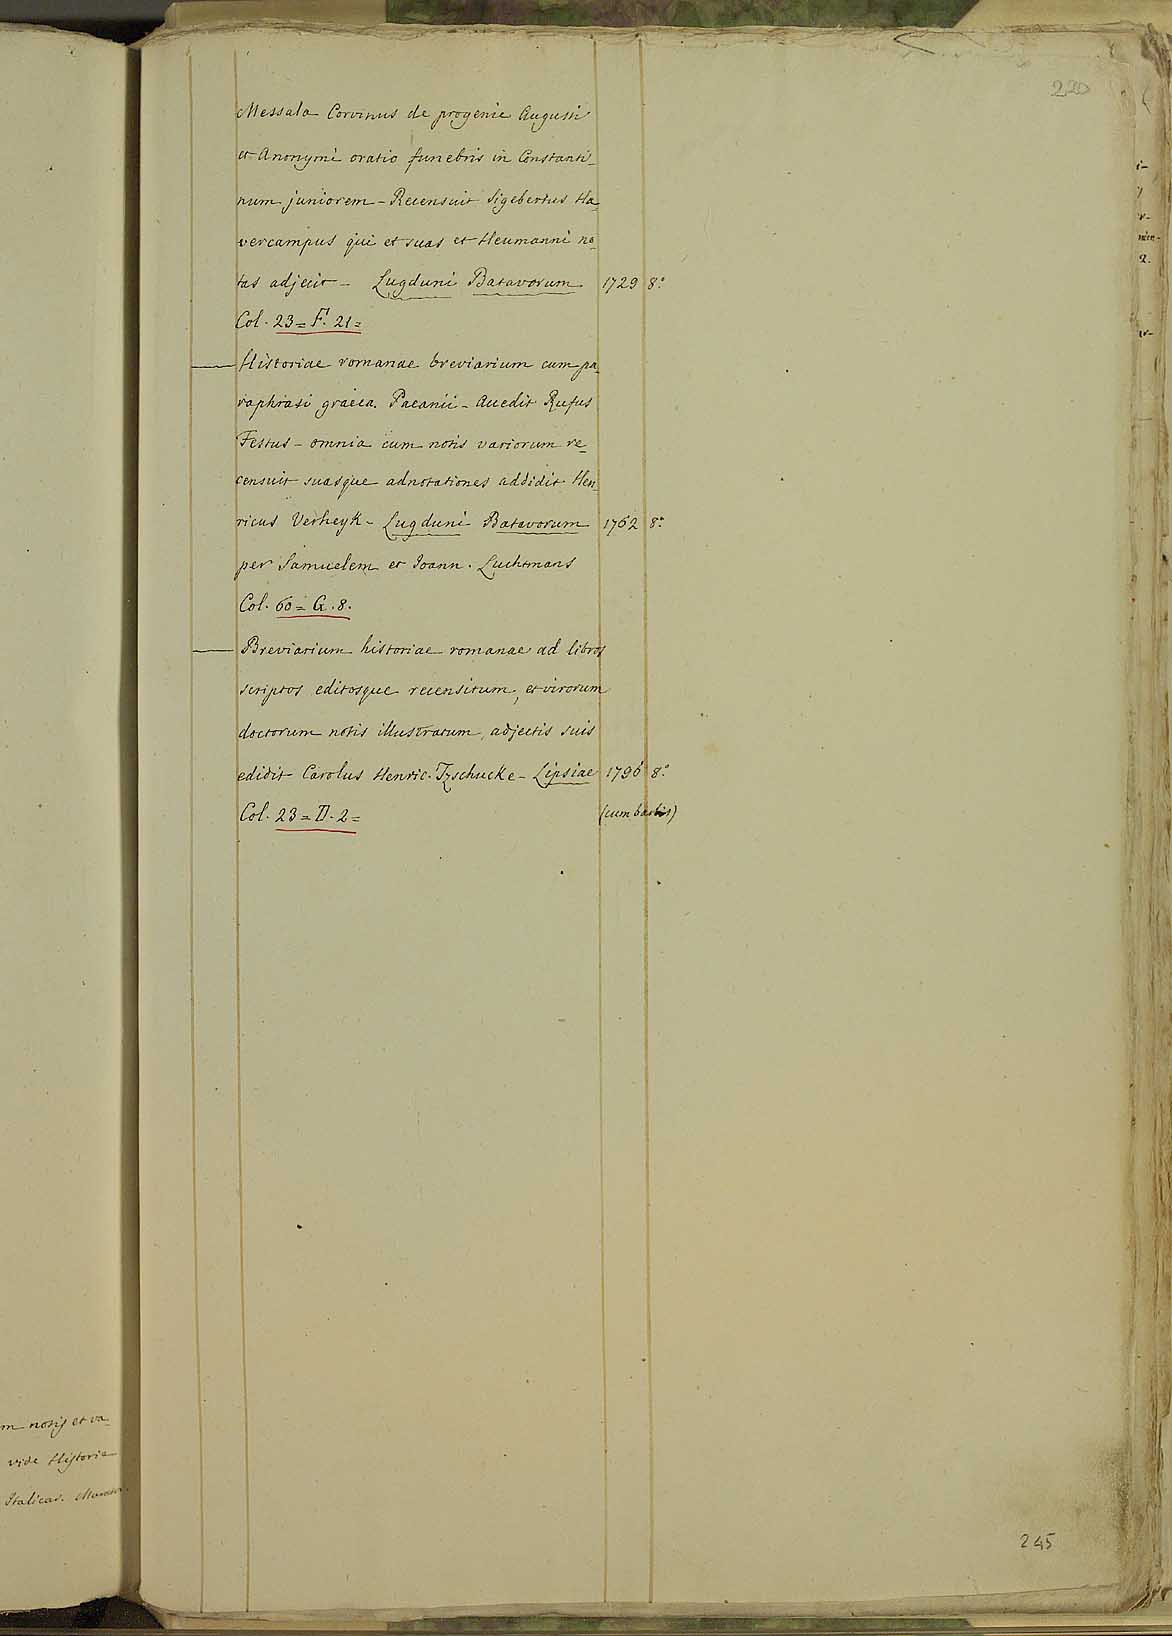 220
Messala Corvinus de progenie Augusti
et Anonymi oratio funebris in Constanti_
num juniorem - Recensuit Sigebertus Ha_
vercampus qui et suas et Heumanni no_
tas adjecit - Lugduni Batavorum 1729 8.º
Col. 23 = F. 21 =
— Historiae romanae breviarium cum pa_
raphrasi graeca Paeanii - Accedit Rufus
Festus - omnia cum notis variorum re_
censuit suasque adnotationes addidit Hen_
ricus Verheyk - Lugduni Batavorum 1762 8.º
per Samuelem et Joann. Luchtmans
Col. 60 = G. 8.
— Breviarium historiae romanae ad libros
scriptos editosque recensitum, et virorum
doctorum notis illustratum, adjectis suis
edidit Carolus Henric. Tzschucke - Lipsiae 1796 8.º
Col. 23 = D. 2 = (cum barbis)
m notis et va_
vide Historia
Italicar.
245